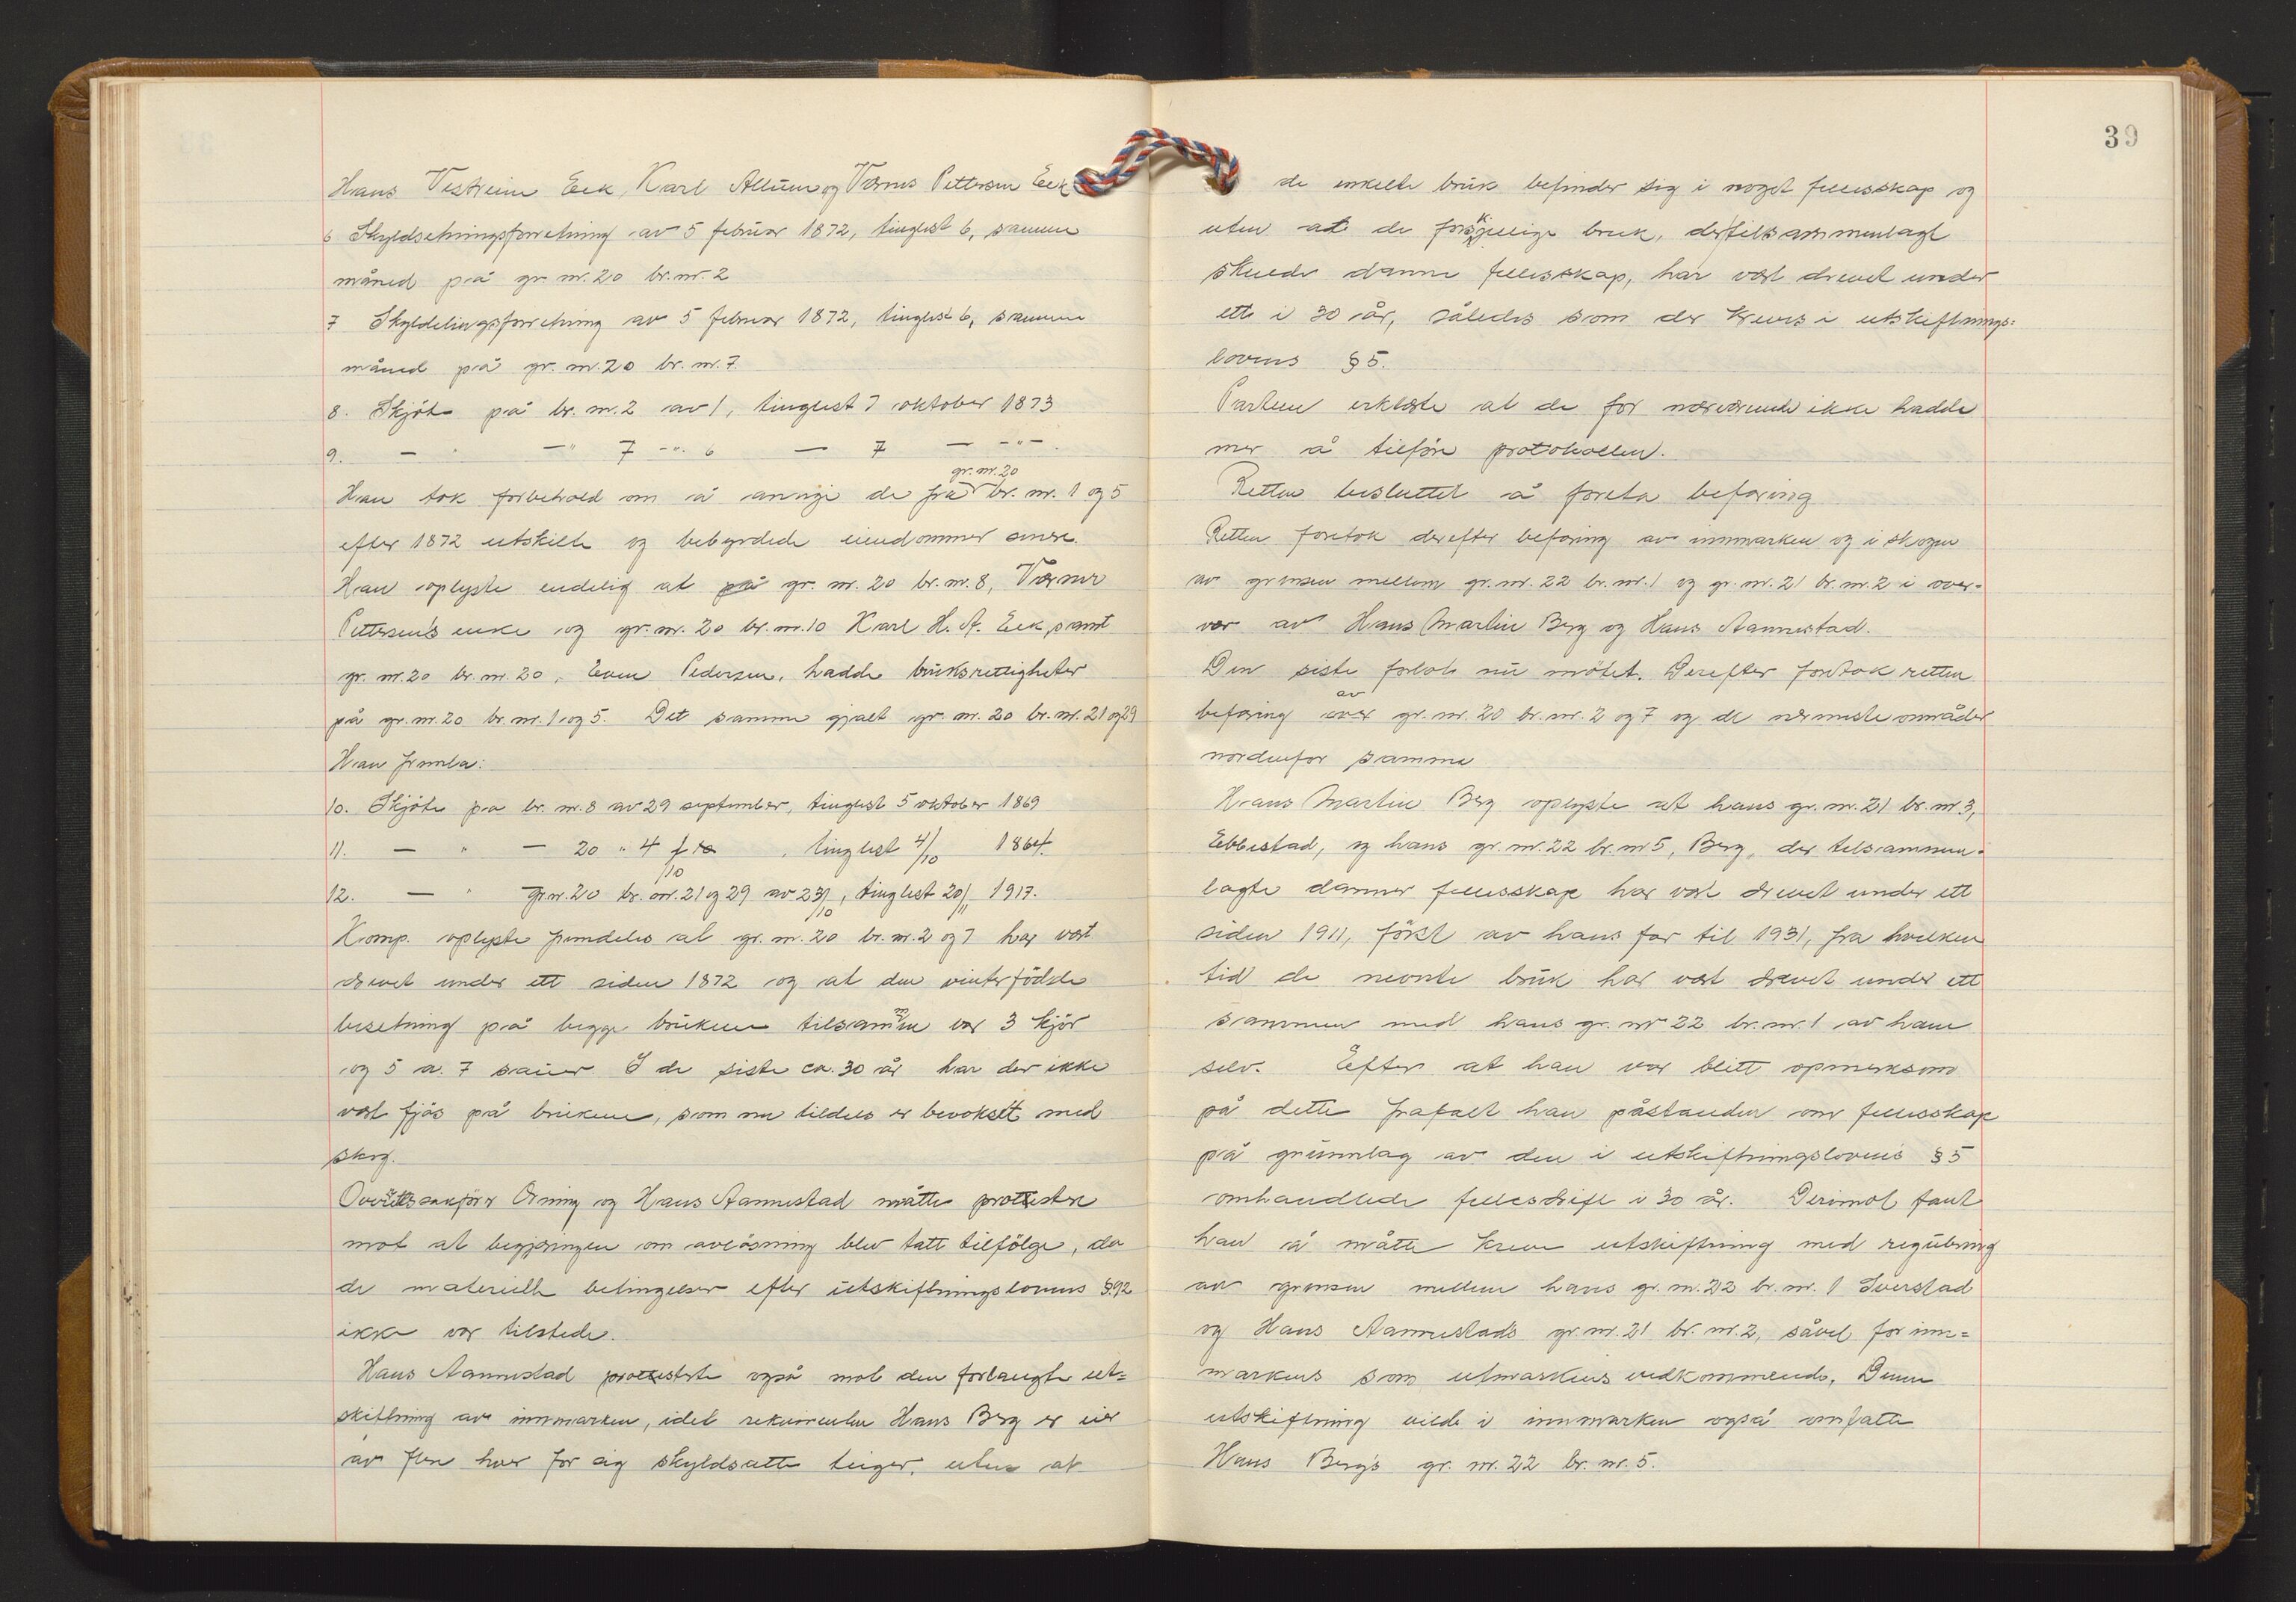 Hans Vestreim Eek, Karl Allum og Værnes Pettersen Eek
6 Skyldsetningsforretning av 5 februar 1872, tinglest 6, samme
måned på gr. nr. 20 br. nr. 2
7 Skylddelingsforretning av 5 februar 1872, tinglest 6, samme
måned på gr. nr. 20 br. nr. 7.
8. Skjöte på br. nr. 2 av 1, tinglest 7 oktober 1873
9. — " —" 7 -"- 6 — 7 — -"-
gr. nr. 20
Han tok forbehold om å angi de fra br. nr. 1 og 5
efter 1872 utskilte og bebyrdede eiendommer senere.
Han oplyste endelig at på gr. nr. 20 br. nr. 8, Værner
Pettersen's enke og gr. nr. 20 br. nr. 10 Karl H. A. Eek, samt
gr. nr. 20 br. nr. 20, Even Pedersen, hadde bruksrettigheter
på gr. nr. 20 br. nr. 1 og 5. Det samme gjalt gr. nr. 20 br. nr. 21 og 29
Han fremla:
10. Skjöte pa br. nr. 8 av 29 september, tinglest 5 oktober 1869
11. — " — 20 " 4/10, tinglest 4/10 1864.
12. — " gr. nr. 20 br. nr. 21 og 29 av 23/10, tinglest 20/11 1917.
Komp. oplyste fremdeles at gr. nr. 20 br. nr. 2 og 7 har vært
drevet under ett siden 1872 og at den vinterfödde
besetning på begge brukene tilsammen var 3 kjör
og 5 a. 7 sauer. I de siste ca. 30 år har der ikke
vært fjös på brukene, som nu tildels er bevokset med
skog.
Overrettssakförer Orning og Hans Aannestad måtte protestere
mot at begjæringen om avlösning blev tatt tilfölge, da
de materielle betingelser efter utskiftningslovens § 92
ikke var tilstede.
Hans Aannestad protesterte også mot den forlangte ut=
skiftning av innmarken, idet rekvirenten Hans Berg er eier
av flere hver for sig skyldsatte teiger, uten at
39
de enkelte bruk befinder sig i noget fellesskap og
uten at de forskjellige bruk, der tilsammenlagt
skulde danne fellesskap, har vært drevet under
ett i 30 år, således som der kreves i utskiftnings=
lovens § 5.
Partene erklærte at de for nærværende ikke hadde
mer å tilföre protokollen.
Retten besluttet å foreta befaring
Retten foretok derefter befaring av innmarken og i skogen
av grensen mellem gr. nr. 22 br. nr. 1 og gr. nr. 21 br. nr. 2 i over=
vær av Hans Martin Berg og Hans Aannestad.
Den siste forlot nu mötet. Derefter foretok retten
av
befaring over gr. nr. 20 br. nr. 2 og 7 og de nærmeste områder
nordenfor samme
Hans Martin Berg oplyste at hans gr. nr. 21 br. nr 3,
Ebbestad, og hans gr. nr. 22 br. nr 5, Berg, der tilsammen=
lagte danner fellesskap har vært drevet under ett
siden 1911, först av hans far til 1931, fra hvilken
tid de nevnte bruk har vært drevet under ett
sammen med hans gr. nr 22 br. nr. 1 av ham
selv. Efter at han var blitt opmerksom
på dette frafalt han påstanden om fellesskap
på grunnlag av den i utskiftningslovens § 5
omhandlede fellesdrift i 30 år. Derimot fant
han å måtte kreve utskiftning med regulering
av grensen mellem hans gr. nr. 22 br. nr. 1 Sverstad
og Hans Aannestads gr. nr. 21 br. nr. 2, såvel for inn=
markens som utmarkens vedkommende. Denne
utskiftning vilde i innmarken også omfatte
Hans Berg's gr. nr. 22 br. nr. 5.